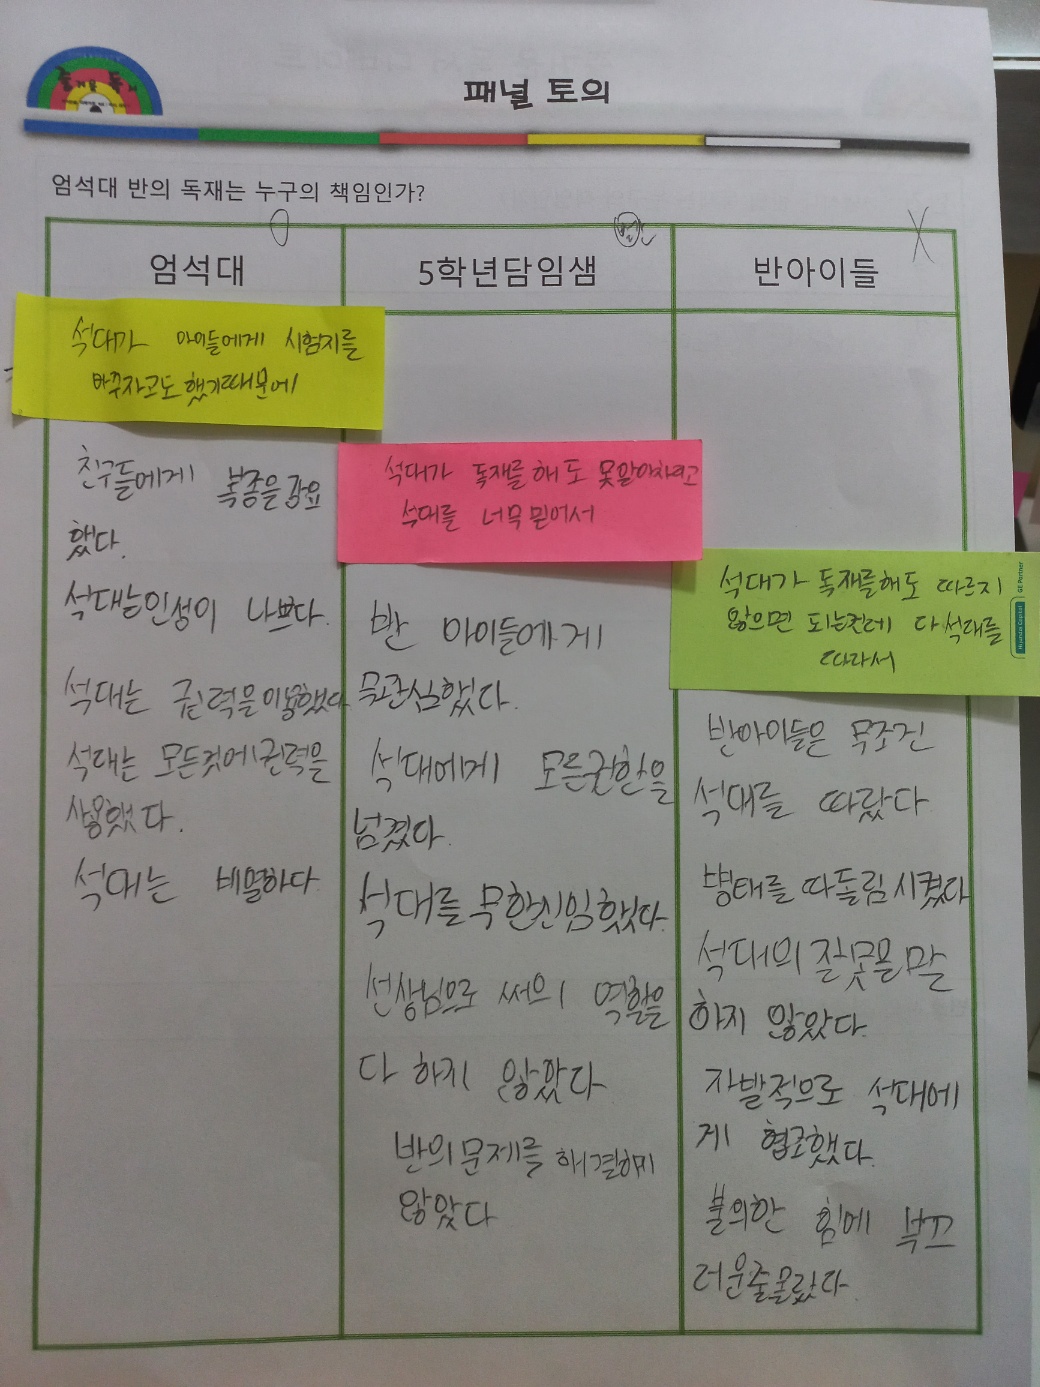 즐거운 독서
패널 토의
엄석대 반의 독재는 누구의 책임인가?
엄석대
석대가 아이들에게 시험지를
바꾸자고도 했기때문에
친구들에게 복종을 강요
했다.
석대는 인성이 나쁘다.
석대는 권력을 이용했다
석대는 모든것에 권력을
사용했다.
석대는 비열하다
5학년담임샘
석대가 독재를 해도 못알아차리고
석대를 너무 믿어서
반 아이들에게
무관심했다.
석대에게 모든권한을
넘겼다.
석대를 무한신임했다.
선생님으로 써의 역할을
다 하지 않았다
반의 문제를 해결하지
않았다
반아이들
석대가 독재를해도 따르지
않으면 되는건데 다 석대를
따라서
반아이들은 무조건
석대를 따랐다
병태를 따돌림 시켰다
석대의 잘못을 말
하지 않았다.
자발적으로 석대에
게 협조했다.
불의한 힘에 부끄
러운줄몰랐다.
Hyundai Capital
GE Partner